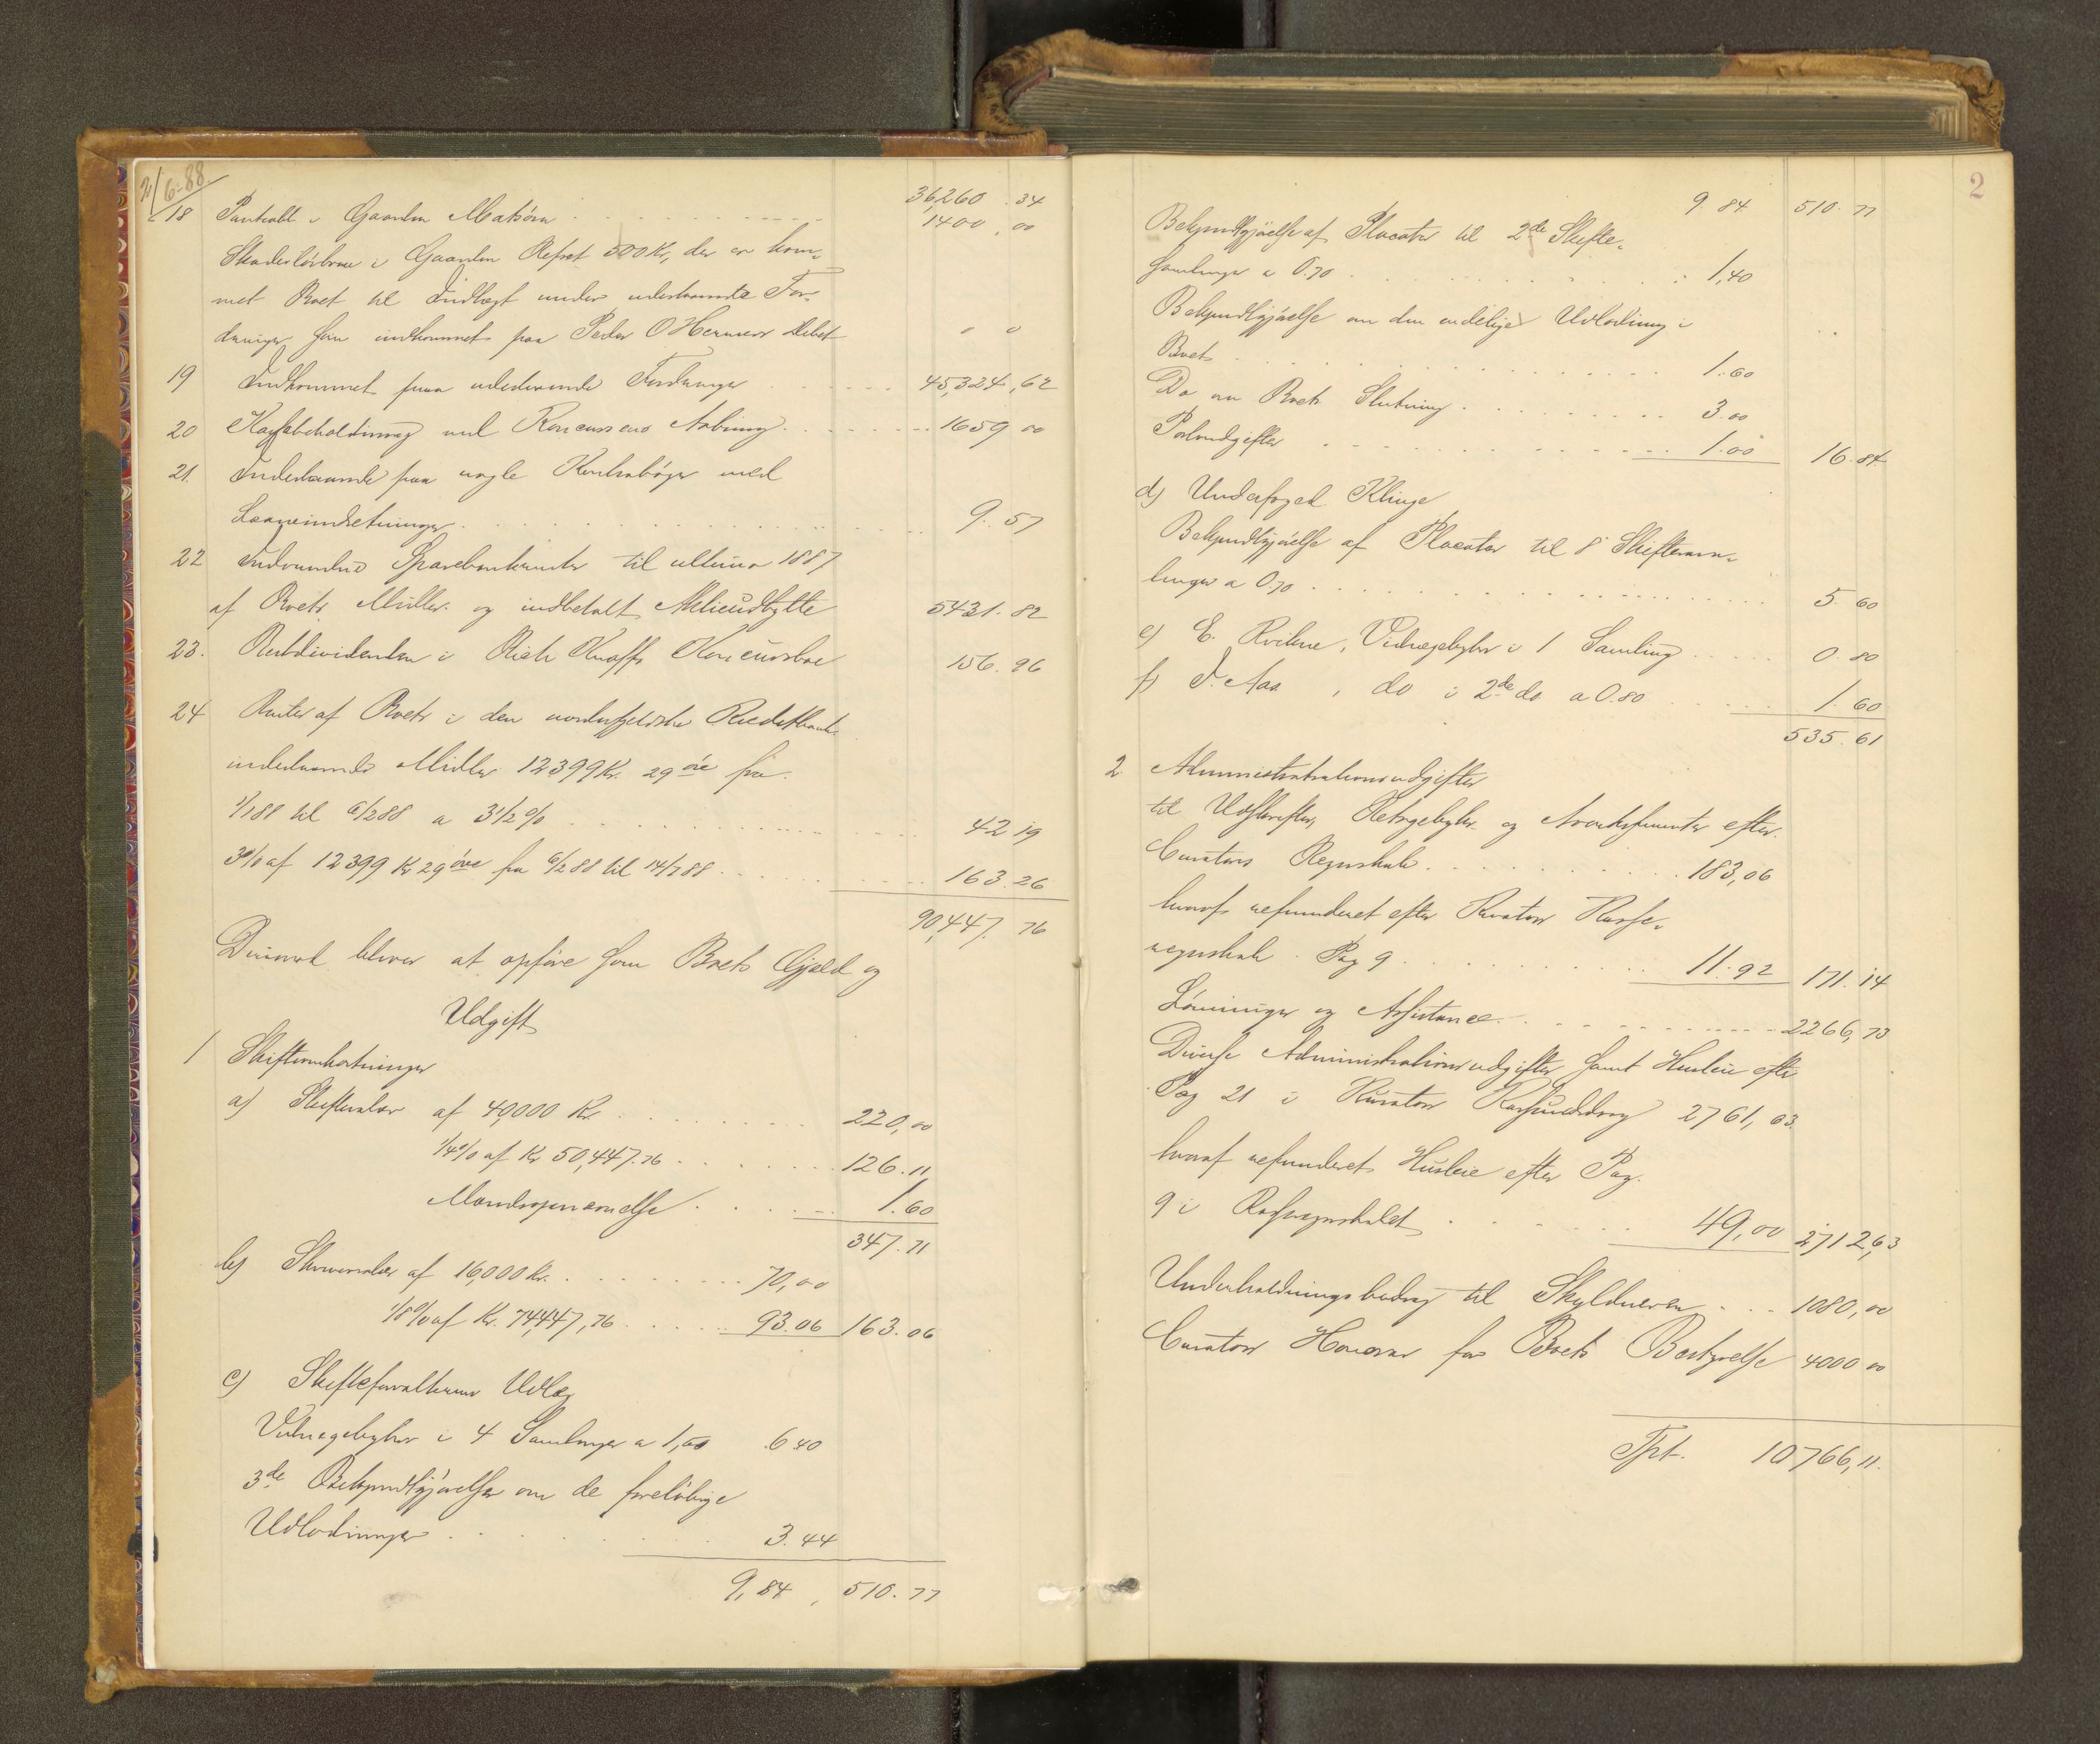 2/6-88
36,260.34
18 Pantcall i Gaarden Matsöra 1400,00
Skadeslösbrev i Gaarden Refset 500 Kr, der er kom-
met Boet til Indtægt under udestaaende For-
dringer som indkommet paa Peder O Hermans Debet " "
19 Indkommet paa udestaaende Fordringer 45,324,62
20 Kassabeholdning ved Koncursens Aabning 1659 00
21. Indestaaende paa nogle Kontrabøger med
Laaneindretninger 9.57
22 Indvundne Sparebankrenter til ultimo 1887
af Boets Midler og indbetalt Aktieudbytte 5431.82
23. Restdividenden i Knoffs Koncursbo 156.96
24 Renter af Boets i den nordenfjeldske Kreditbank
indestaaende Midler 12399 Kr. 29 öre fra
1/1 88 til 6/2 88 a 3 1/2 % 42 19
3 % af 12399 Kr 29 öre fra 6/2 88 til 14/7 88 163.26
90,447.76
Derimod bliver at opføre som Boets Gjæld og
Udgift
1 Skifteomkostninger
a) Skiftesalær af 40,000 Kr. 220,00
1/4 % af Kr 50,447.76 126.11
Mandsopnævnelse 1.60
347.71
b) Skriversalær af 16,000 Kr. 70,00
1/8 % af Kr. 74,447,76 93.06 163.06
c) Skifteforvalterens Udlæg
Vidnegebyhr i 4 Samlinger a 1,60 6 40
3de Bekjendtgjørelser om de foreløbige
Udlodninger 3.44
9,84, 510.77
2
9.84 510.77
Bekjendtgjörelse af Placater til 2de Skifte-
samlinger a 0.70 1,40
Bekjendtgjörelse om den endelige Udlodning i
Boet 1.60
Do om Boets Slutning 3.00
Postudgifter 1.00 16.84
d) Underfoged Klinge
Bekjendtgjörelse af Placater til 8 Skiftesam-
linger a 0.70 5.60
e) E. Kvikne, Vidnegebyhr i 1 Samling 0.80
f) J. Aas, do i 2de do a 0.80 1.60
535.61
2 Administrationsudgifter
til Udskrifter, Retsgebyhr og Avertissementer efter
Curators Regnskab 183,06
hvoraf refunderet efter Kurators Kasse-
regnskab Pag 9 11.92 171.14
Lönninger og Assistance 2266,73
Diverse Administrationsudgifter samt Husleie efter
Pag 21 i Kurators Kasseuddrag 2761,63
hvoraf refunderet Husleie efter Pag.
9 i Kasseregnskabet 49,00 2712,63
Underholdningsbidrag til Skyldneren 1080,00
Curators Honorar for Boets Bestyrelse 4000 00
Tpt. 10766,11.